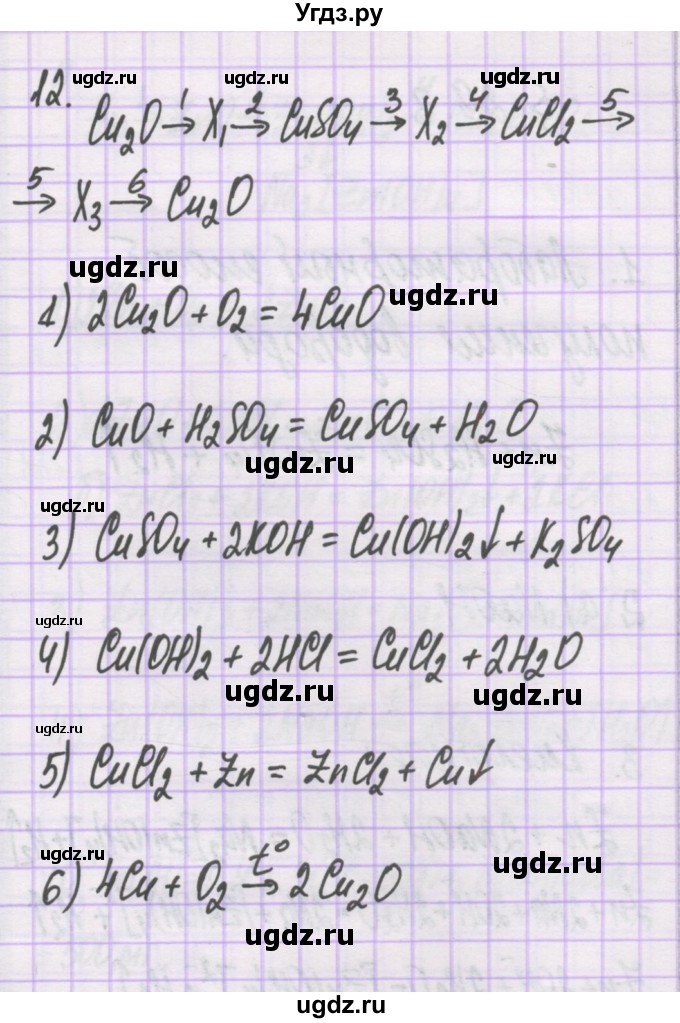 Угдз.ру
ugdz.ru ugdz.ru ugdz.ru
12. Cu₂O →1 X₁ →2 CuSO₄ →3 X₂ →4 CuCl₂ →5
→5 X₃ →6 Cu₂O
ugdz.ru ugdz.ru
1) 2Cu₂O + O₂ = 4CuO
2) CuO + H₂SO₄ = CuSO₄ + H₂O
ugdz.ru ugdz.ru
ugdz.ru
3) CuSO₄ + 2KOH = Cu(OH)₂↓ + K₂SO₄
ugdz.ru
4) Cu(OH)₂ + 2HCl = CuCl₂ + 2H₂O
ugdz.ru ugdz.ru
ugdz.ru
5) CuCl₂ + Zn = ZnCl₂ + Cu↓
ugdz.ru ugdz.ru
6) 4Cu + O₂ →t° 2Cu₂O
ugdz.ru
ugdz.ru